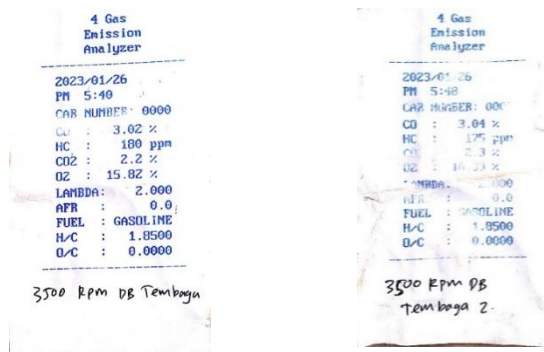 4 Gas
Emission
Analyzer
2023/01/26
PM 5:40
CAR NUMBER: 0000
CO : 3.02 %
HC : 180 ppm
CO2 : 2.2 %
O2 : 15.82 %
LAMBDA: 2.000
AFR : 0.0
FUEL : GASOLINE
H/C : 1.8500
O/C : 0.0000
3500 Rpm DB Tembaga
4 Gas
Emission
Analyzer
2023/01/26
PM 5:48
CAR NUMBER: 000
CO : 3.04 %
HC : 175 ppm
CO2 : 2.3 %
O2 : %
LAMBDA: 2.000
AFR : 0.0
FUEL : GASOLINE
H/C : 1.8500
O/C : 0.0000
3500 Rpm DB
Tembaga 2.